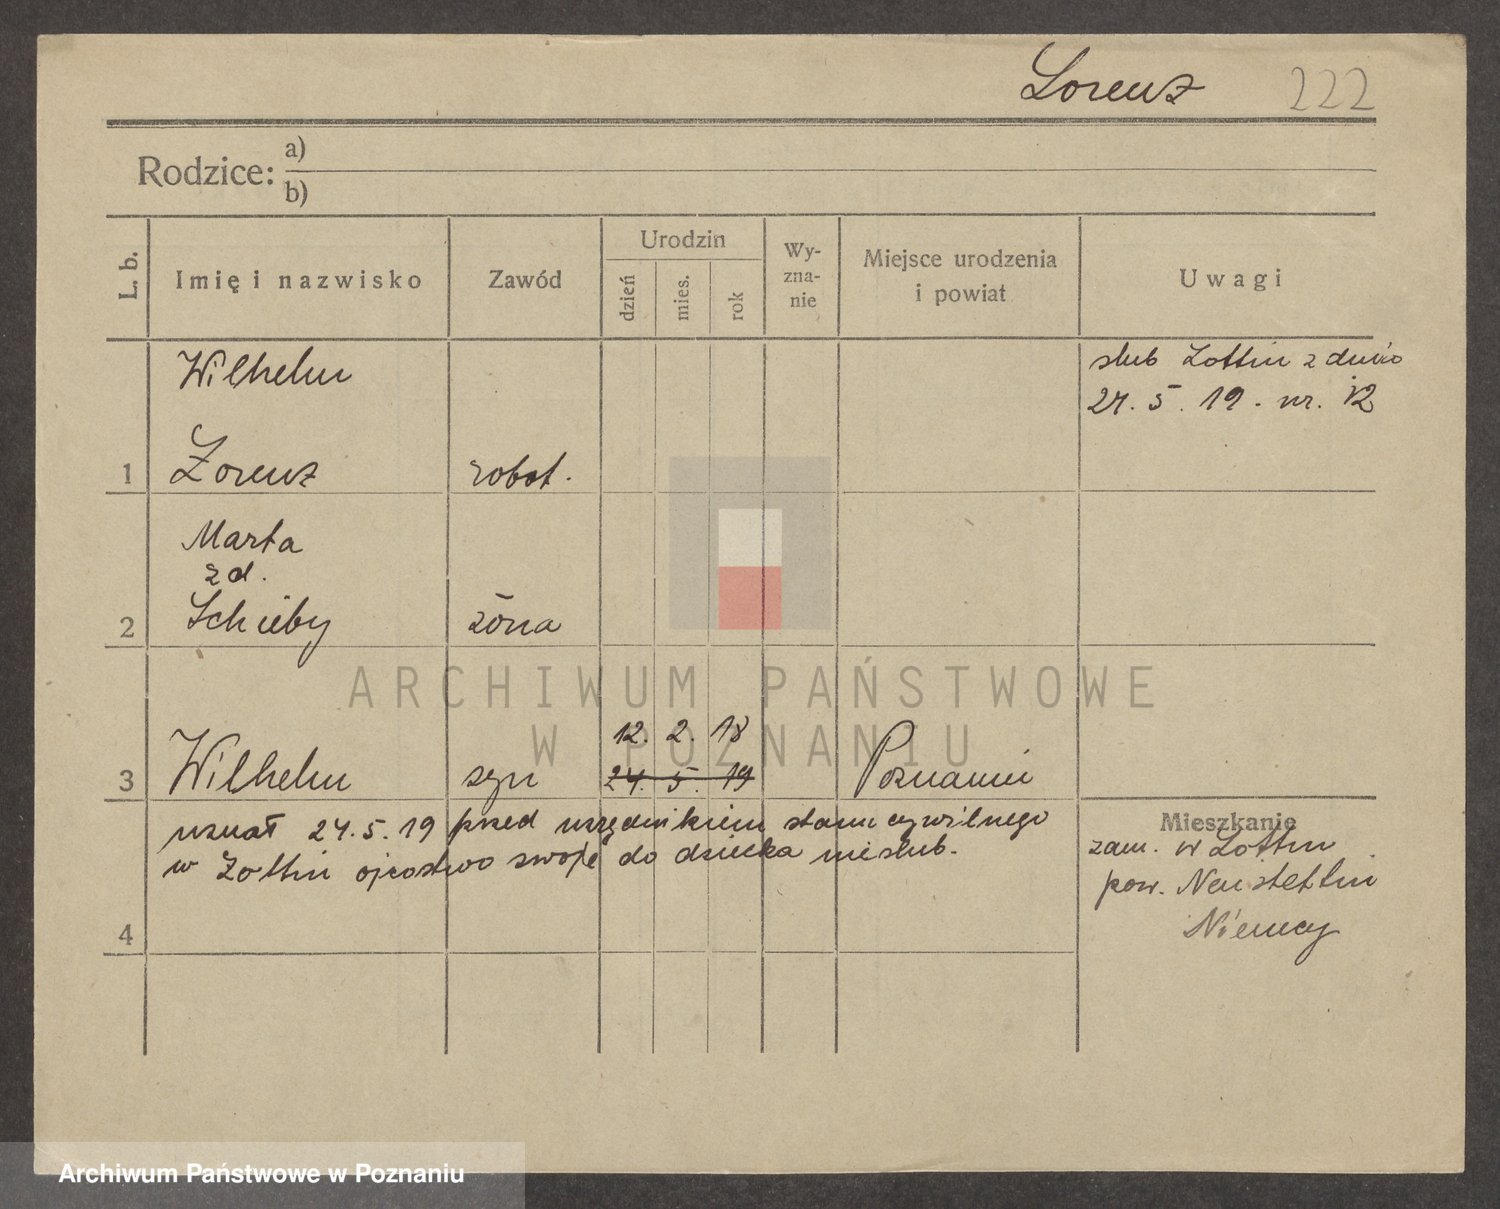 Lorenz 222
Rodzice: a)
b)
L. b.
Imię i nazwisko
Zawód
Urodzin
dzień
mies.
rok
Wy-
zna-
nie
Miejsce urodzenia
i powiat
Uwagi
Wilhelm
ślub Lottin z dnia
24. 5. 19. nr. 12
1 Lorenz robot.
Marta
zd.
2 żona
12. 2. 18
3 Wilhelm syn 24. 5. 19 Poznaniu
uznał 24.5.19 przed urzędnikiem stanu cywilnego
w Lottin ojcostwo swoje do dziecka nieślub.
Mieszkanie
zam. w Lottin
pow. Neustettin
Niemcy
4
ARCHIWUM PAŃSTWOWE
W POZNANIU
Archiwum Państwowe w Poznaniu